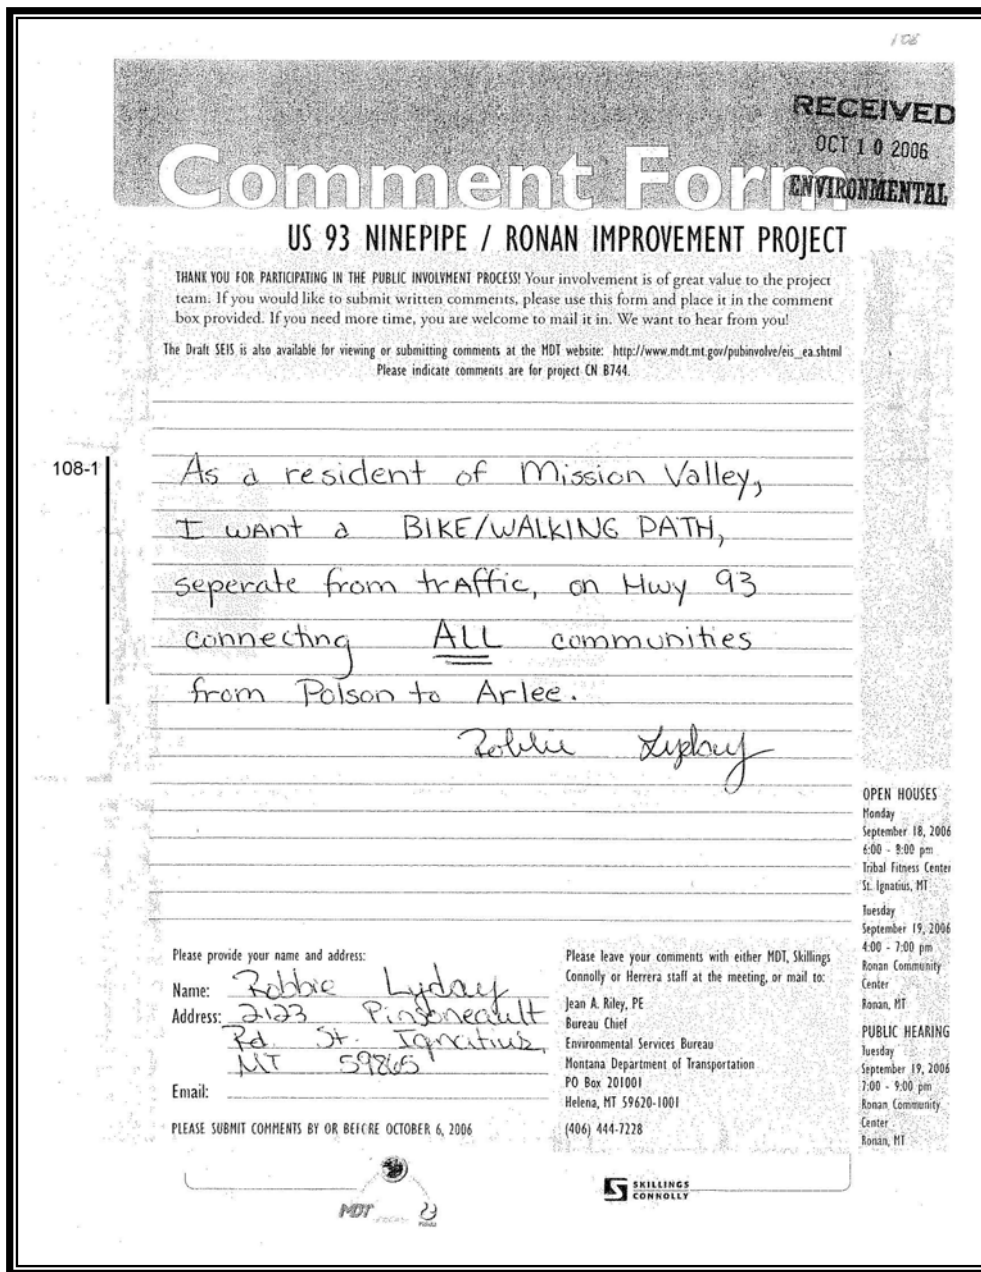 108
RECEIVED
OCT 10 2006
ENVIRONMENTAL
Comment Form
US 93 NINEPIPE / RONAN IMPROVEMENT PROJECT
THANK YOU FOR PARTICIPATING IN THE PUBLIC INVOLVMENT PROCESS! Your involvement is of great value to the project
team. If you would like to submit written comments, please use this form and place it in the comment
box provided. If you need more time, you are welcome to mail it in. We want to hear from you!
The Draft SEIS is also available for viewing or submitting comments at the MDT website: http://www.mdt.mt.gov/pubinvolve/eis_ea.shtml
Please indicate comments are for project CN B744.
108-1
As a resident of Mission Valley,
I WANT a BIKE/WALKING PATH,
seperate from trAffic, on Hwy 93
connecting ALL communities
from Polson to Arlee.
Robbie Lyday
OPEN HOUSES
Monday
September 18, 2006
6:00 - 8:00 pm
Tribal Fitness Center
St. Ignatius, MT
Tuesday
September 19, 2006
4:00 - 7:00 pm
Ronan Community
Center
Ronan, MT
PUBLIC HEARING
Tuesday
September 19, 2006
7:00 - 9:00 pm
Ronan Community
Center
Ronan, MT
Please provide your name and address:
Name: Robbie Lyday
Address: 2123 Pinsoneault
Rd St. Ignatius,
MT 59865
Email:
PLEASE SUBMIT COMMENTS BY OR BEFORE OCTOBER 6, 2006
Please leave your comments with either MDT, Skillings
Connolly or Herrera staff at the meeting, or mail to:
Jean A. Riley, PE
Bureau Chief
Environmental Services Bureau
Montana Department of Transportation
PO Box 201001
Helena, MT 59620-1001
(406) 444-7228
MDT
SKILLINGS
CONNOLLY